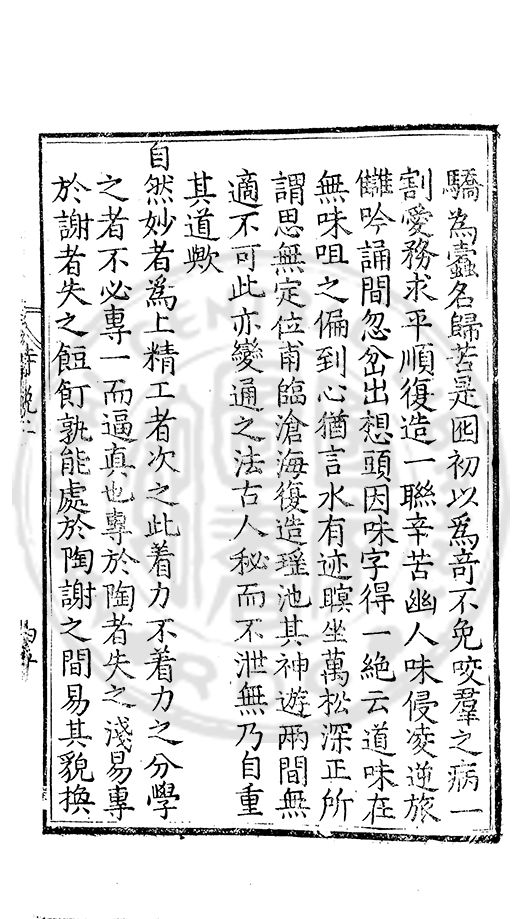 驕為蠹名歸苦是囮初以爲竒不免咬羣之病一
割愛務求平順復造一聯辛苦幽人味侵凌逆旅
讎吟誦間忽岔出想頭因味字得一絶云道味在
無味咀之偏到心猶言水有迹瞑坐萬松深正所
謂思無定位甫臨滄海復造瑶池其神遊兩間無
適不可此亦變通之法古人秘而不泄無乃自重
其道歟
自然妙者爲上精工者次之此着力不着力之分學
之者不必專一而逼真也專於陶者失之淺易專
於謝者失之餖飣孰能處於陶謝之間易其貌換